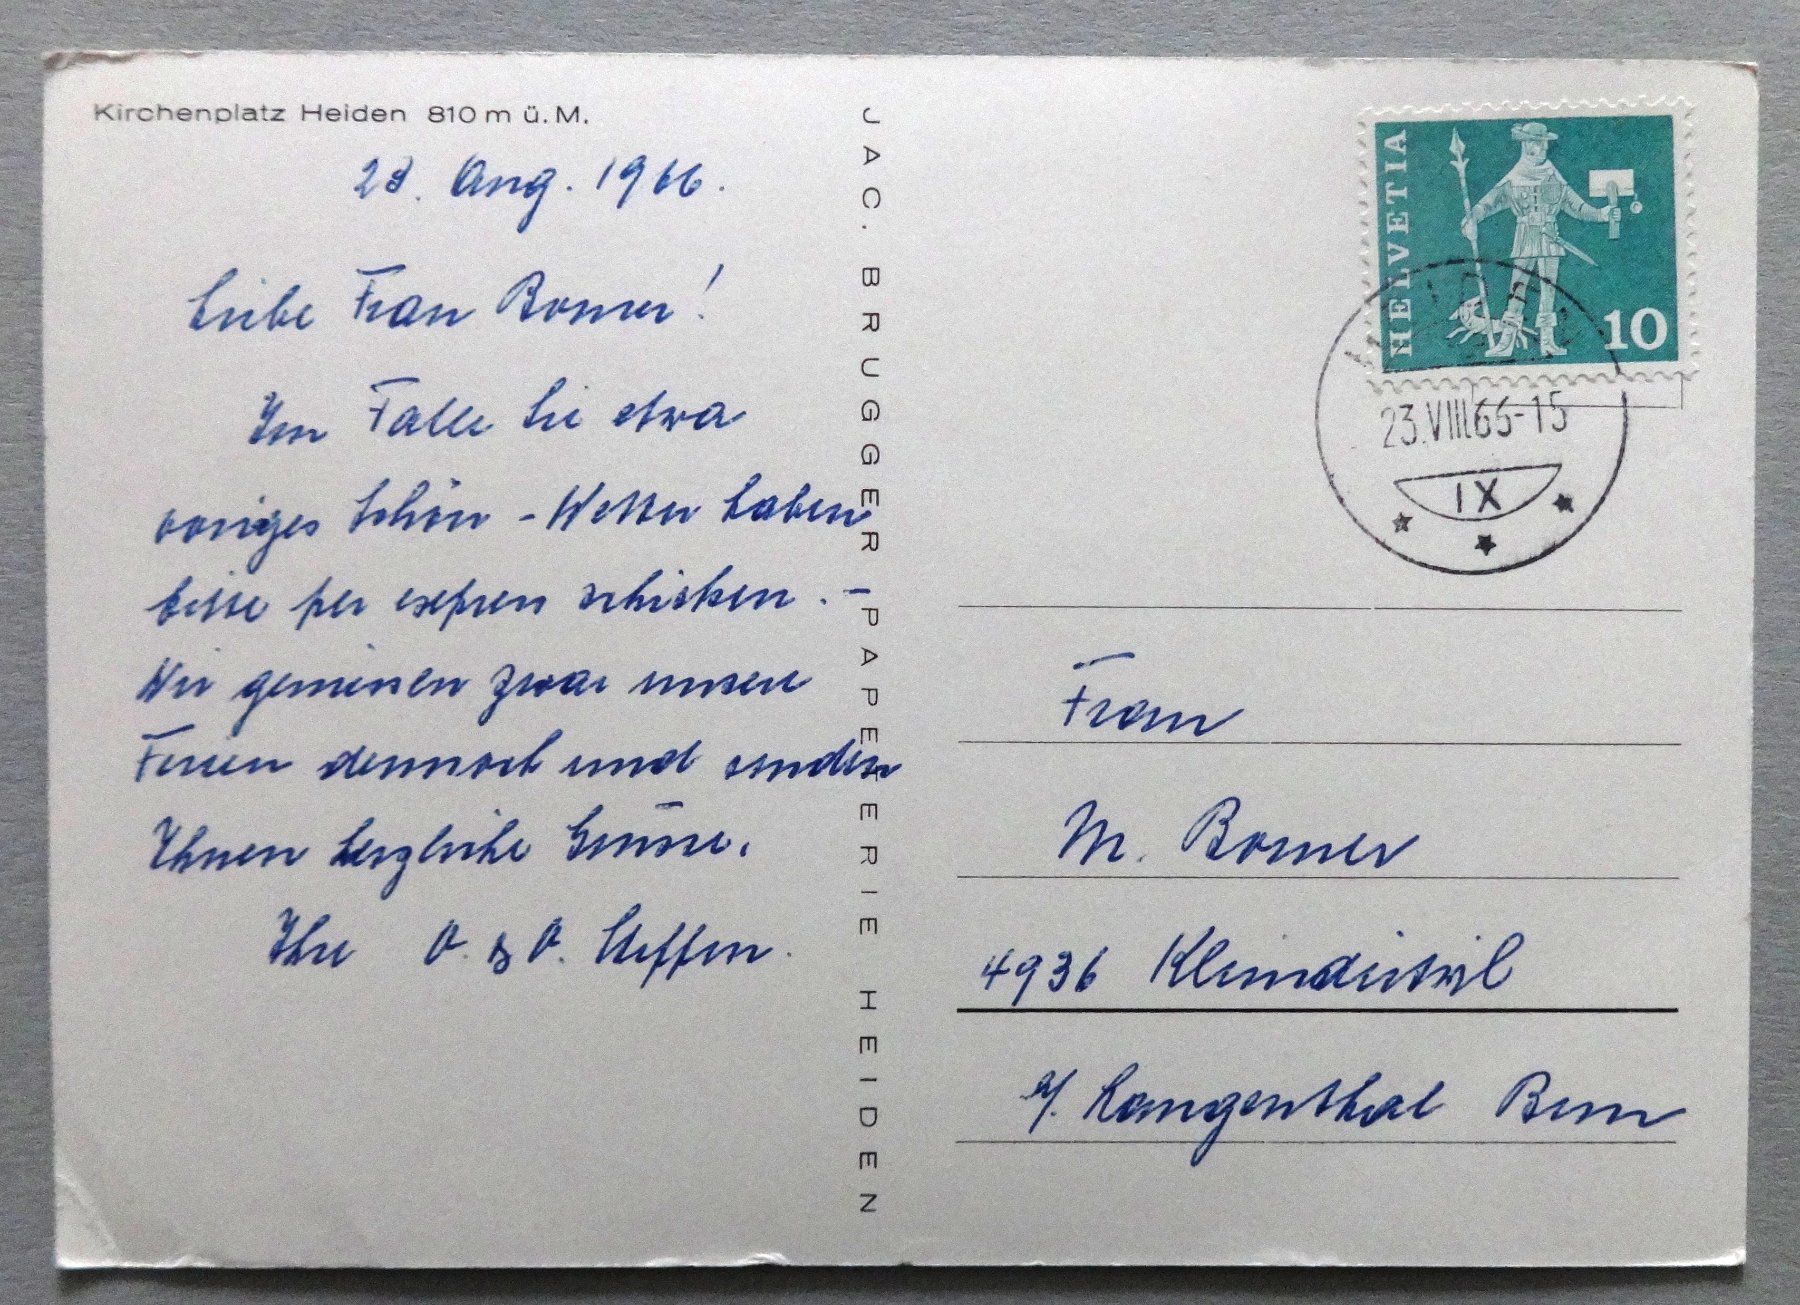 Kirchenplatz Heiden 810 m ü. M.
23. Aug. 1966.
Liebe Frau Borner!
Im Falle Sie etwa
voriges Schön-Wetter haben
bitte per express schicken. -
Wir geniessen zwar unsere
Ferien dennoch und senden
Ihnen herzliche Grüsse.
Ihre O. & O. Steffen.
JAC. BRUGGER-PAPETERIE HEIDEN
HELVETIA
10
23.VIII.66-15
IX
Frau
M. Borner
4936 Kleindietwil
b/. Langenthal Bern